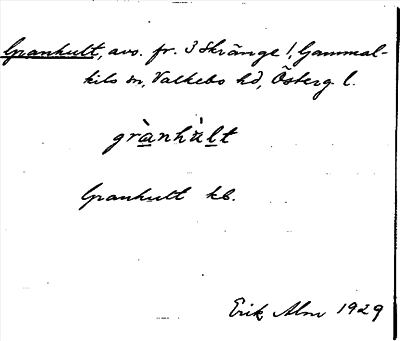 Granhult, avs. fr. 3 Skränge /, Gammal-
kils sn, Valkebo hd, Österg. l.
grànhùlt
Granhult kb.
Erik Alm 1929